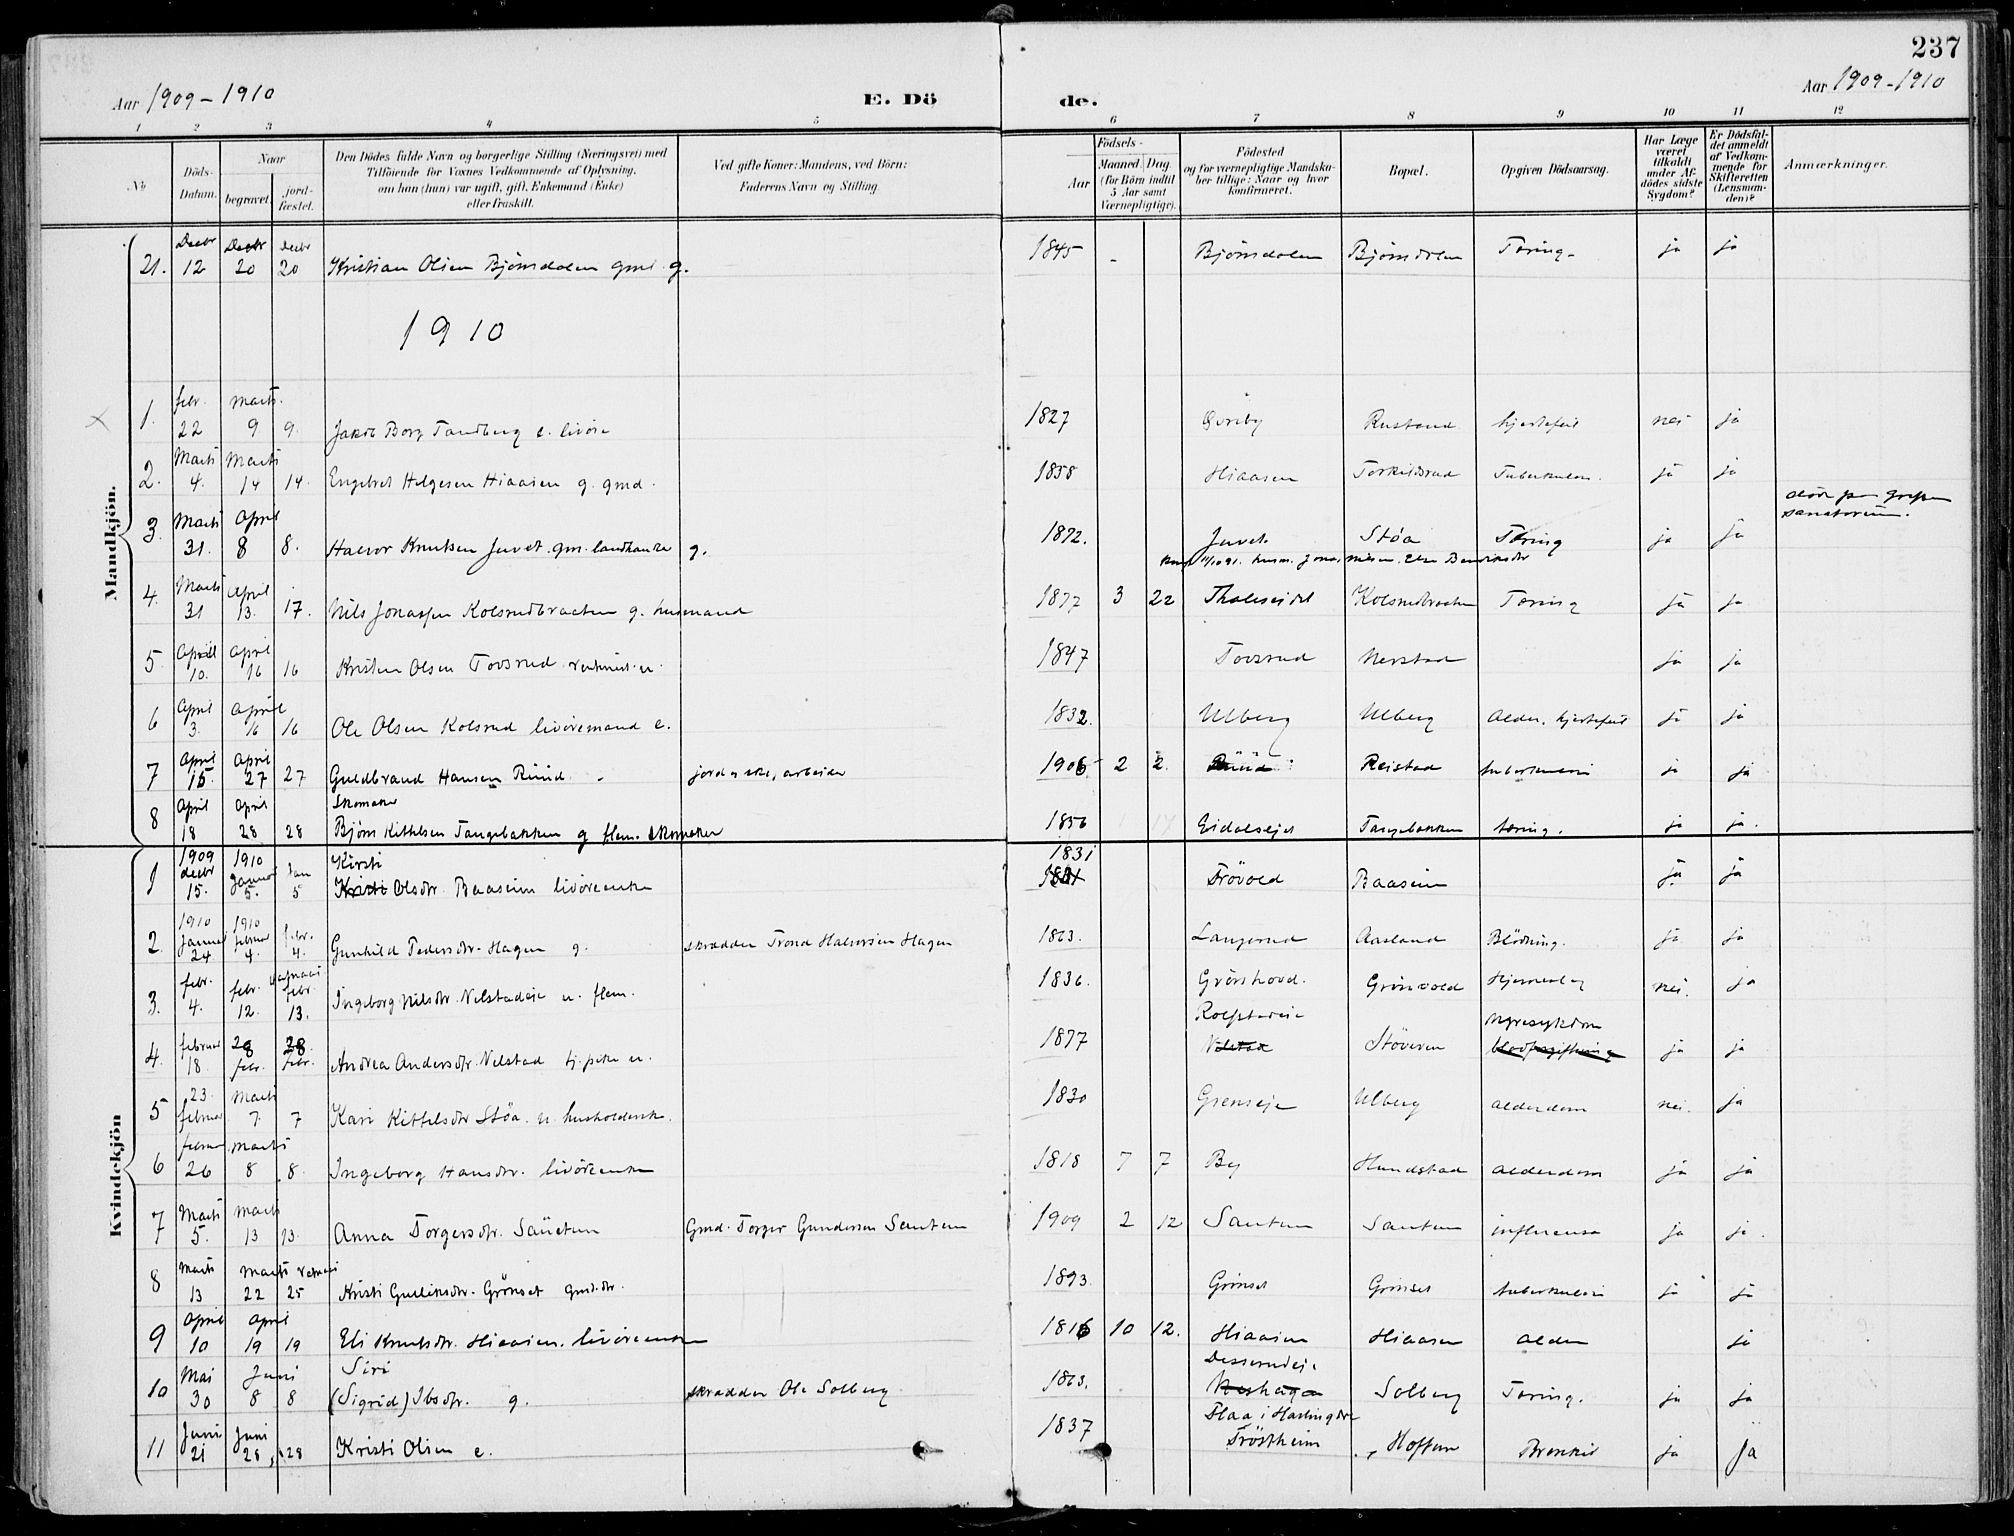 237
Aar 1909-1910 E. Dö de. Aar 1909-1910
1 2 3 4 5 6 7 8 9 10 11 12
No Döds-Datum. Naar begravet. jord-fæstet. Den Dödes fulde Navn og borgerlige Stilling (Næringsvei) med Tilföiende for Voxnes Vedkommende af Oplysning, om han (hun) var ugift, gift, Enkemand (Enke) eller fraskilt. Ved gifte Koner: Mandens, ved Börn: Faderens Navn og Stilling. Födsels- Aar Maaned. Dag. (for Börn indtil 5 Aar samt Værnepligtige). Födested og for værnepligtige Mandskaber tillige: Naar og hvor konfirmeret. Bopæl. Opgiven Dödsaarsag. Har Læge været tilkaldt under Afdödes sidste Sygdom? Er Dödsfaldet anmeldt af Vedkommende for Skifteretten (Lensmanden)? Anmærkninger.
Mandkjön.
21. Decbr 12 Decbr 20 Decbr 20 Kristian Olsen Björnsdalen gmd g. 1845 - Björnsdalen Björnsdalen Tæring ja ja
1910
1. febr. 22 marts 9 9. Jakob Borg Tandberg e. livöre 1827 Qvisby Rustand hjertefeil nei ja
2. Marts 4. Marts 14 14. Engebret Helgesen Hiaasen g. gmd. 1858 Hiaasen Torkildsrud Tuberkulose. ja ja
3. Marts 31. April 8 8. Halvor Knutsen Juvet. gm. landhandler g. 1872. Juvet Stöa Tæring ja ja döde paa Grefsen sanatorium.
4. Marts 31 April 13. 17. Nils Jonassen Kolsrudbraaten g. husmand 1877 3 22 Tholeseidet Kolsrudbraaten Tæring ja ja
5. April 10. April 16 16 Kristen Olsen Tovsrud u. 1847 Tovsrud Nerstad ja ja
6 April 3. April 16 16 Ole Olsen Kolsrud livöremand e. 1832. Ulberg Ulberg Alder, hjertefeil ja ja
7 April 15. April 27 27 Guldbrand Hansen Ruud - arbeider 1906 2 2. Ruud Reistad tuberkulose ja ja
8 April 18 April 28 28 Skomaker Björn Kittilsen Tangebakken g flem. skomaker 1856 Eidalseiet Tangebakken tæring. ja ja.
Kvindekjön
1 1909 decbr 15. 1910 Januar 5. Jan 5 Kirsti Kristi Olsdtr. Baaseim livöreenke 1831 Trövold Baaseim ja ja
2. 1910 Januar 24 1910 februar 4. febr. 4. Gunhild Pedersdtr. Hagen g. skrædder Trond Halvorsen Hagen 1863. Langerud Aasland Blödning. ja ja
3. febr. 4. febr. 12. febr. 13. Ingeborg Nilsdtr. Velstadeie u. flem. 1836. Grönhovd. Grönvold Hjerneslag nei. ja
4. februar 18. 28 febr. 28 febr. Andrea Andersdtr. Velstad tj.pike u. 1877 Rolfstadeie Velstad Stöveren Nyresygdom blodforgiftning ja ja
5 23. februar Marts 7. 7 Kari Kittelsdtr Stöa. u. husholderske. 1830 Grenseie Ulberg Alderdom nei. ja
6 februar 26 marts 8 8. Ingeborg Hansdtr. livöreenke 1818 7 7 By Hundstad Alderdom ja ja
7 Marts 5. Marts 13 13. Anna Torgersdtr. Sandtum Gmd. Torger Gundersen Santum 1909 2 12 Santum Santum influensa ja ja.
8 Marts 13 marts 22 25 Kristi Gulliksdtr. Grönset gmd.dtr. 1893. Grönset Grönset tuberkulose ja ja
9 April 10 April 19 19 Eli Knutsdtr. Hiaasen. livöreenke 1816 10 12. Hiaasen Hiaasen Alder ja
10 Mai 30 Juni 8 8 Siri (Sigrid) Ibsdtr. g. skrædder Ole Solberg 1863. Desserudeie Solberg Tæring. ja ja
11 Juni 21 Juni 28 28 Kristi Olsen e. 1837 Flaa i Hallingdal Tröstheim Hoffum Bronkit ja ja